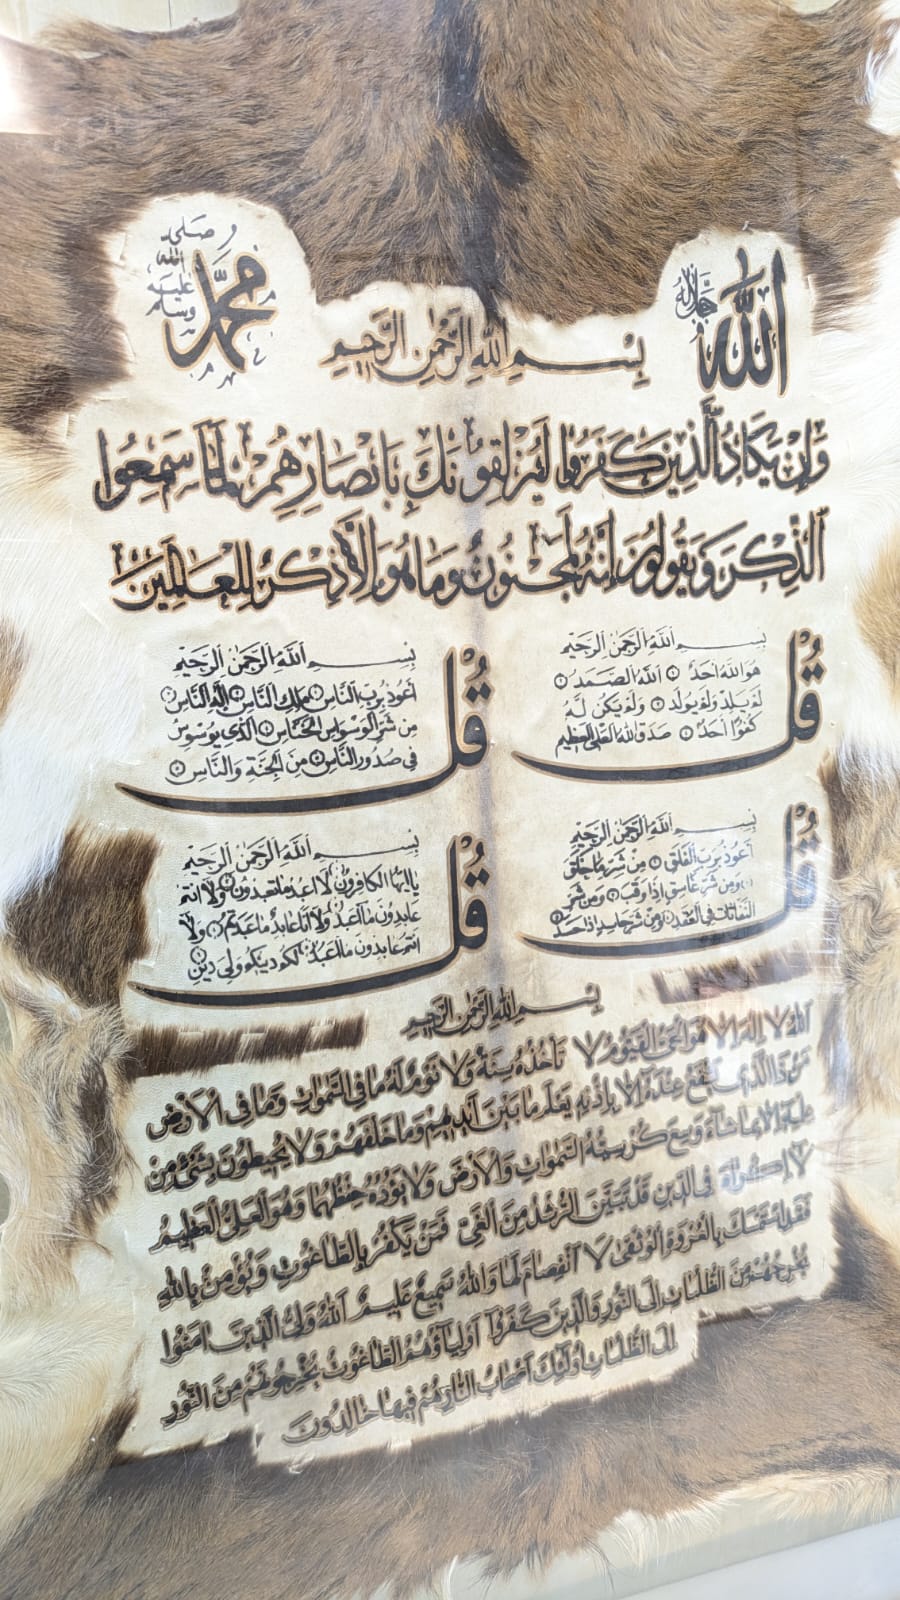 الله جل جلاله
محمد صلى الله عليه وسلم
بِسْمِ اللهِ الرَّحْمٰنِ الرَّحِيمِ
وَإِنْ يَكَادُ الَّذِينَ كَفَرُوا لَيُزْلِقُونَكَ بِأَبْصَارِهِمْ لَمَّا سَمِعُوا
الذِّكْرَ وَيَقُولُونَ إِنَّهُ لَمَجْنُونٌ وَمَا هُوَ إِلَّا ذِكْرٌ لِلْعَالَمِينَ
بِسْمِ اللهِ الرَّحْمٰنِ الرَّحِيمِ
قُل
هُوَ اللهُ أَحَدٌ ۝ اَللهُ الصَّمَدُ ۝
لَمْ يَلِدْ وَلَمْ يُولَدْ ۝ وَلَمْ يَكُنْ لَهُ
كُفُوًا أَحَدٌ ۝ صدق الله العلي العظيم
بِسْمِ اللهِ الرَّحْمٰنِ الرَّحِيمِ
قُل
أَعُوذُ بِرَبِّ النَّاسِ ۝ مَلِكِ النَّاسِ ۝ إِلٰهِ النَّاسِ ۝
مِنْ شَرِّ الْوَسْوَاسِ الْخَنَّاسِ ۝ الَّذِي يُوَسْوِسُ
فِي صُدُورِ النَّاسِ ۝ مِنَ الْجِنَّةِ وَالنَّاسِ ۝
بِسْمِ اللهِ الرَّحْمٰنِ الرَّحِيمِ
قُل
أَعُوذُ بِرَبِّ الْفَلَقِ ۝ مِنْ شَرِّ مَا خَلَقَ
۝ وَمِنْ شَرِّ غَاسِقٍ إِذَا وَقَبَ ۝ وَمِنْ شَرِّ
النَّفَّاثَاتِ فِي الْعُقَدِ ۝ وَمِنْ شَرِّ حَاسِدٍ إِذَا حَسَدَ
بِسْمِ اللهِ الرَّحْمٰنِ الرَّحِيمِ
قُل
يا ايها الكافرون لا اعبد ما تعبدون ۝ ولا انتم
عابدون ما اعبد ولا انا عابد ما عبدتم ۝ ولا
انتم عابدون ما اعبد لكم دينكم ولي دين ۝
بِسْمِ اللهِ الرَّحْمٰنِ الرَّحِيمِ
اللهُ لَا إِلٰهَ إِلَّا هُوَ الْحَيُّ الْقَيُّومُ لَا تَأْخُذُهُ سِنَةٌ وَلَا نَوْمٌ لَهُ مَا فِي السَّمٰوَاتِ وَمَا فِي الْأَرْضِ
مَنْ ذَا الَّذِي يَشْفَعُ عِنْدَهُ إِلَّا بِإِذْنِهِ يَعْلَمُ مَا بَيْنَ أَيْدِيهِمْ وَمَا خَلْفَهُمْ وَلَا يُحِيطُونَ بِشَيْءٍ مِنْ
عِلْمِهِ إِلَّا بِمَا شَاءَ وَسِعَ كُرْسِيُّهُ السَّمٰوَاتِ وَالْأَرْضَ وَلَا يَؤُدُهُ حِفْظُهُمَا وَهُوَ الْعَلِيُّ الْعَظِيمُ
لَا إِكْرَاهَ فِي الدِّينِ قَدْ تَبَيَّنَ الرُّشْدُ مِنَ الْغَيِّ فَمَنْ يَكْفُرْ بِالطَّاغُوتِ وَيُؤْمِنْ بِاللهِ
فَقَدِ اسْتَمْسَكَ بِالْعُرْوَةِ الْوُثْقٰى لَا انْفِصَامَ لَهَا وَاللهُ سَمِيعٌ عَلِيمٌ اَللهُ وَلِيُّ الَّذِينَ اٰمَنُوا
يُخْرِجُهُمْ مِنَ الظُّلُمَاتِ إِلَى النُّورِ وَالَّذِينَ كَفَرُوا أَوْلِيَاؤُهُمُ الطَّاغُوتُ يُخْرِجُونَهُمْ مِنَ النُّورِ
إِلَى الظُّلُمَاتِ أُولٰئِكَ أَصْحَابُ النَّارِ هُمْ فِيهَا خَالِدُونَ